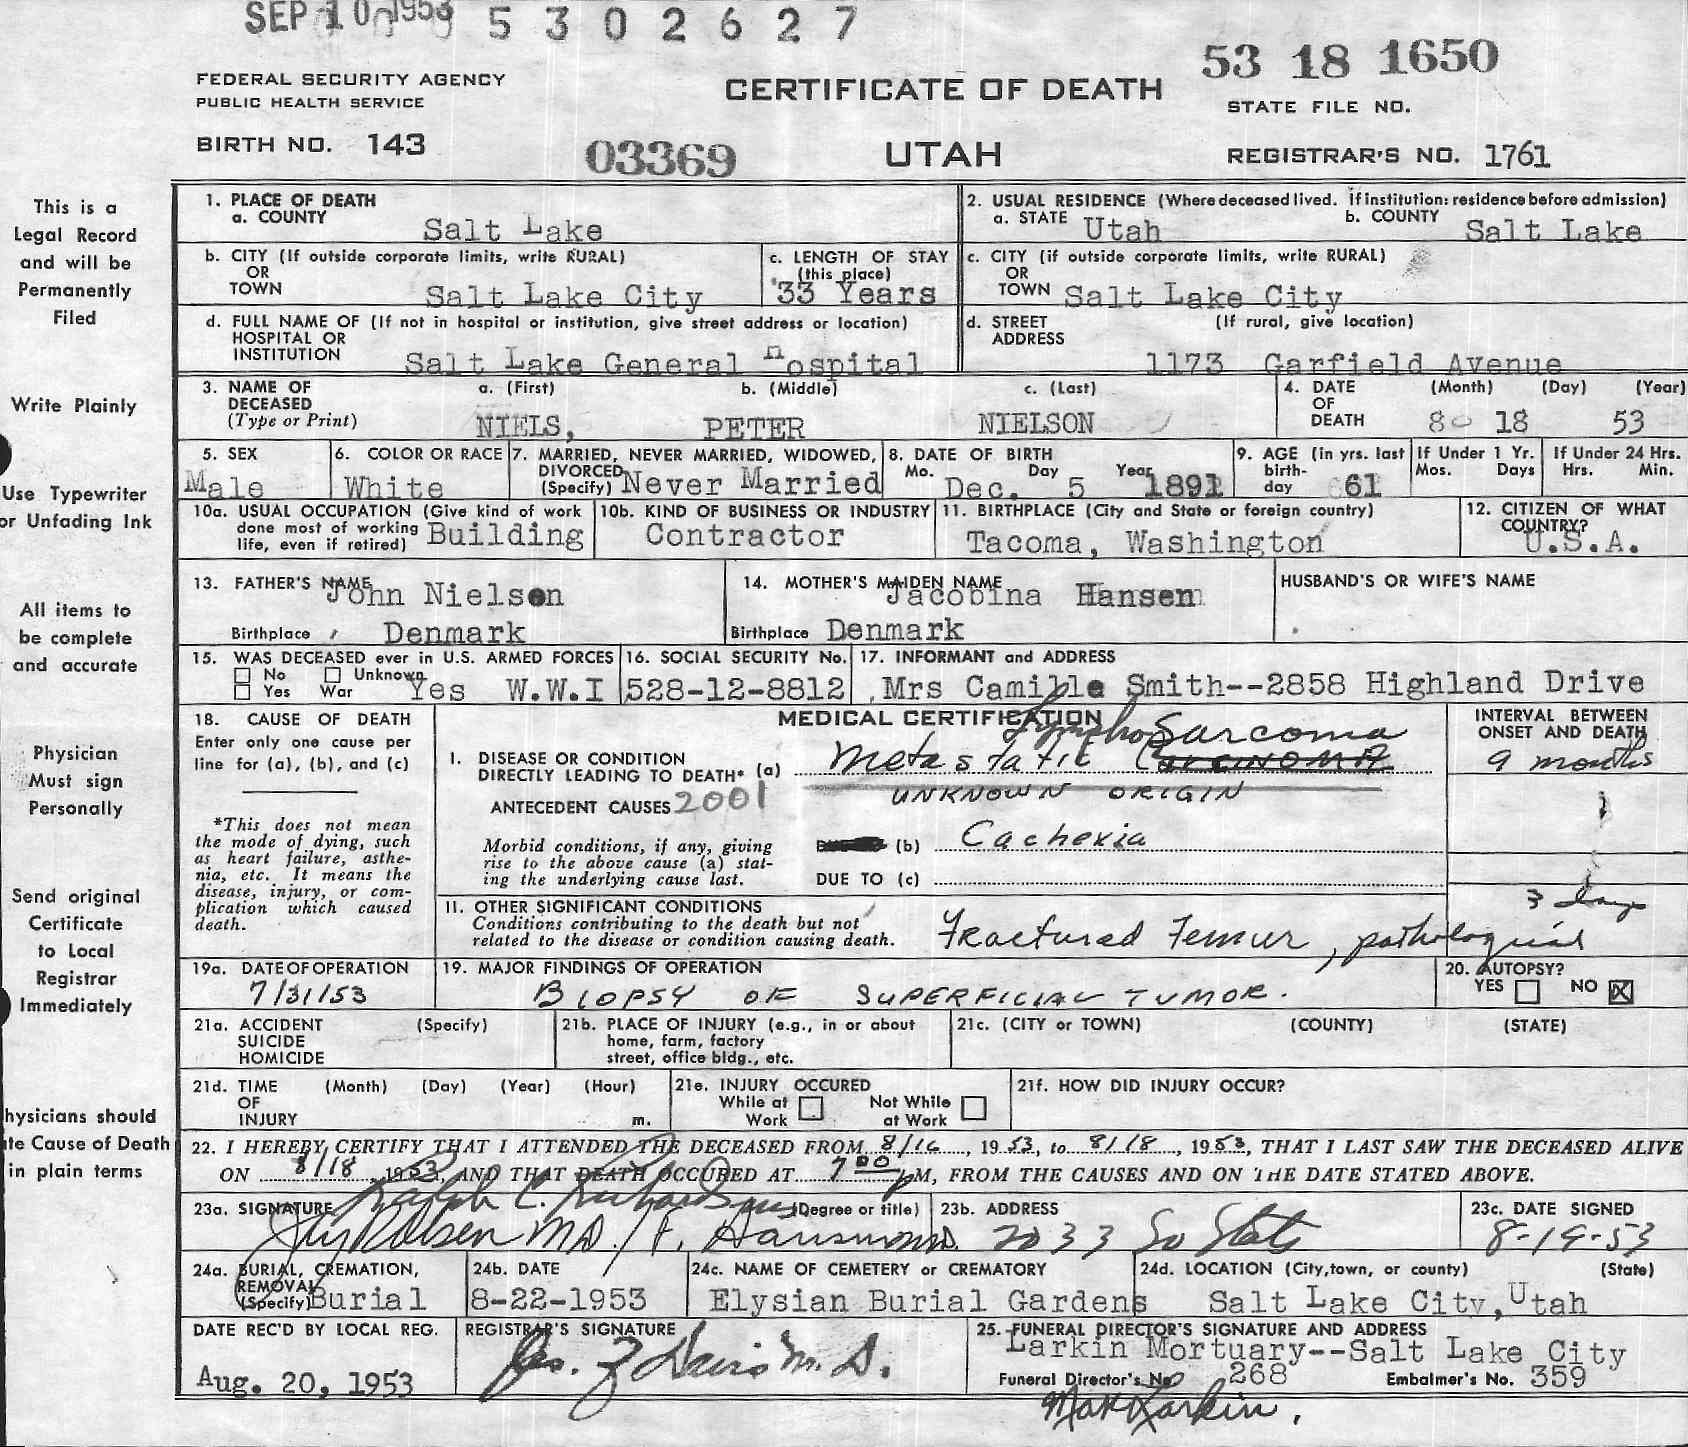 SEP 10 1953 5302627
53 18 1650
FEDERAL SECURITY AGENCY
PUBLIC HEALTH SERVICE
CERTIFICATE OF DEATH
STATE FILE NO.
BIRTH NO. 143
03369
UTAH
REGISTRAR'S NO. 1761
This is a
Legal Record
and will be
Permanently
Filed
Write Plainly
Use Typewriter
or Unfading Ink
All items to
be complete
and accurate
Physician
Must sign
Personally
Send original
Certificate
to Local
Registrar
Immediately
hysicians should
te Cause of Death
in plain terms
1. PLACE OF DEATH
a. COUNTY
Salt Lake
2. USUAL RESIDENCE (Where deceased lived. if institution: residence before admission)
a. STATE Utah b. COUNTY Salt Lake
b. CITY (If outside corporate limits, write RURAL)
OR
TOWN Salt Lake City
c. LENGTH OF STAY
(this place)
33 Years
c. CITY (if outside corporate limits, write RURAL)
OR
TOWN Salt Lake City
d. FULL NAME OF (If not in hospital or institution, give street address or location)
HOSPITAL OR
INSTITUTION Salt Lake General Hospital
d. STREET (If rural, give location)
ADDRESS
1173 Garfield Avenue
3. NAME OF a. (First) b. (Middle) c. (Last)
DECEASED
(Type or Print) NIELS, PETER NIELSON
4. DATE (Month) (Day) (Year)
OF
DEATH 8 18 53
5. SEX
Male
6. COLOR OR RACE
White
7. MARRIED, NEVER MARRIED, WIDOWED,
DIVORCED
(Specify) Never Married
8. DATE OF BIRTH
Mo. Day Year
Dec. 5 1891
9. AGE (in yrs. last
birth-
day 61
If Under 1 Yr.
Mos. Days
If Under 24 Hrs.
Hrs. Min.
10a. USUAL OCCUPATION (Give kind of work
done most of working
life, even if retired) Building
10b. KIND OF BUSINESS OR INDUSTRY
Contractor
11. BIRTHPLACE (City and State or foreign country)
Tacoma, Washington
12. CITIZEN OF WHAT
COUNTRY?
U.S.A.
13. FATHER'S NAME
John Nielsen
Birthplace Denmark
14. MOTHER'S MAIDEN NAME
Jacobina Hansen
Birthplace Denmark
HUSBAND'S OR WIFE'S NAME
15. WAS DECEASED ever in U.S. ARMED FORCES
No Unknown
Yes War Yes W.W.I
16. SOCIAL SECURITY No.
528-12-8812
17. INFORMANT and ADDRESS
Mrs Camille Smith--2858 Highland Drive
18. CAUSE OF DEATH
Enter only one cause per
line for (a), (b), and (c)
*This does not mean
the mode of dying, such
as heart failure, asthe-
nia, etc. It means the
disease, injury, or com-
plication which caused
death.
MEDICAL CERTIFICATION
INTERVAL BETWEEN
ONSET AND DEATH
Lympho Sarcoma
I. DISEASE OR CONDITION
DIRECTLY LEADING TO DEATH* (a) Metastatic Carcinoma
9 months
UNKNOWN ORIGIN
ANTECEDENT CAUSES 2001
Morbid conditions, if any, giving
rise to the above cause (a) stat-
ing the underlying cause last.
(b) Cachexia
DUE TO (c)
11. OTHER SIGNIFICANT CONDITIONS
Conditions contributing to the death but not
related to the disease or condition causing death.
Fractured Femur, pathological
3 days
19a. DATE OF OPERATION
7/31/53
19. MAJOR FINDINGS OF OPERATION
BIOPSY OF SUPERFICIAL TUMOR.
20. AUTOPSY?
YES NO X
21a. ACCIDENT (Specify)
SUICIDE
HOMICIDE
21b. PLACE OF INJURY (e.g., in or about
home, farm, factory
street, office bldg., etc.
21c. (CITY or TOWN) (COUNTY) (STATE)
21d. TIME (Month) (Day) (Year) (Hour)
OF
INJURY m.
21e. INJURY OCCURED
While at Not While
Work at Work
21f. HOW DID INJURY OCCUR?
22. I HEREBY CERTIFY THAT I ATTENDED THE DECEASED FROM 8/16, 1953, to 8/18, 1953, THAT I LAST SAW THE DECEASED ALIVE
ON 8/18, 1953, AND THAT DEATH OCCURED AT 7 00 pM, FROM THE CAUSES AND ON THE DATE STATED ABOVE.
23a. SIGNATURE Ralph C. Richards (Degree or title)
23b. ADDRESS
2033 So State
23c. DATE SIGNED
8-19-53
24a. BURIAL, CREMATION,
REMOVAL
(Specify) Burial
24b. DATE
8-22-1953
24c. NAME OF CEMETERY or CREMATORY
Elysian Burial Gardens
24d. LOCATION (City, town, or county) (State)
Salt Lake City, Utah
DATE REC'D BY LOCAL REG.
Aug. 20, 1953
REGISTRAR'S SIGNATURE
25. FUNERAL DIRECTOR'S SIGNATURE AND ADDRESS
Larkin Mortuary--Salt Lake City
Funeral Director's No 268 Embalmer's No. 359